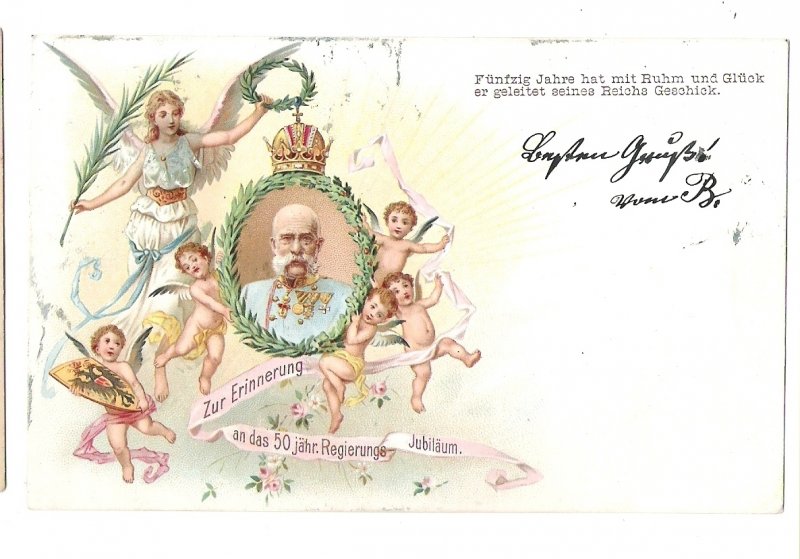 Fünfzig Jahre hat mit Ruhm und Glück
er geleitet seines Reichs Geschick.
Besten Gruß!
vom B.
Zur Erinnerung
an das 50 jähr. Regierungs-Jubiläum.